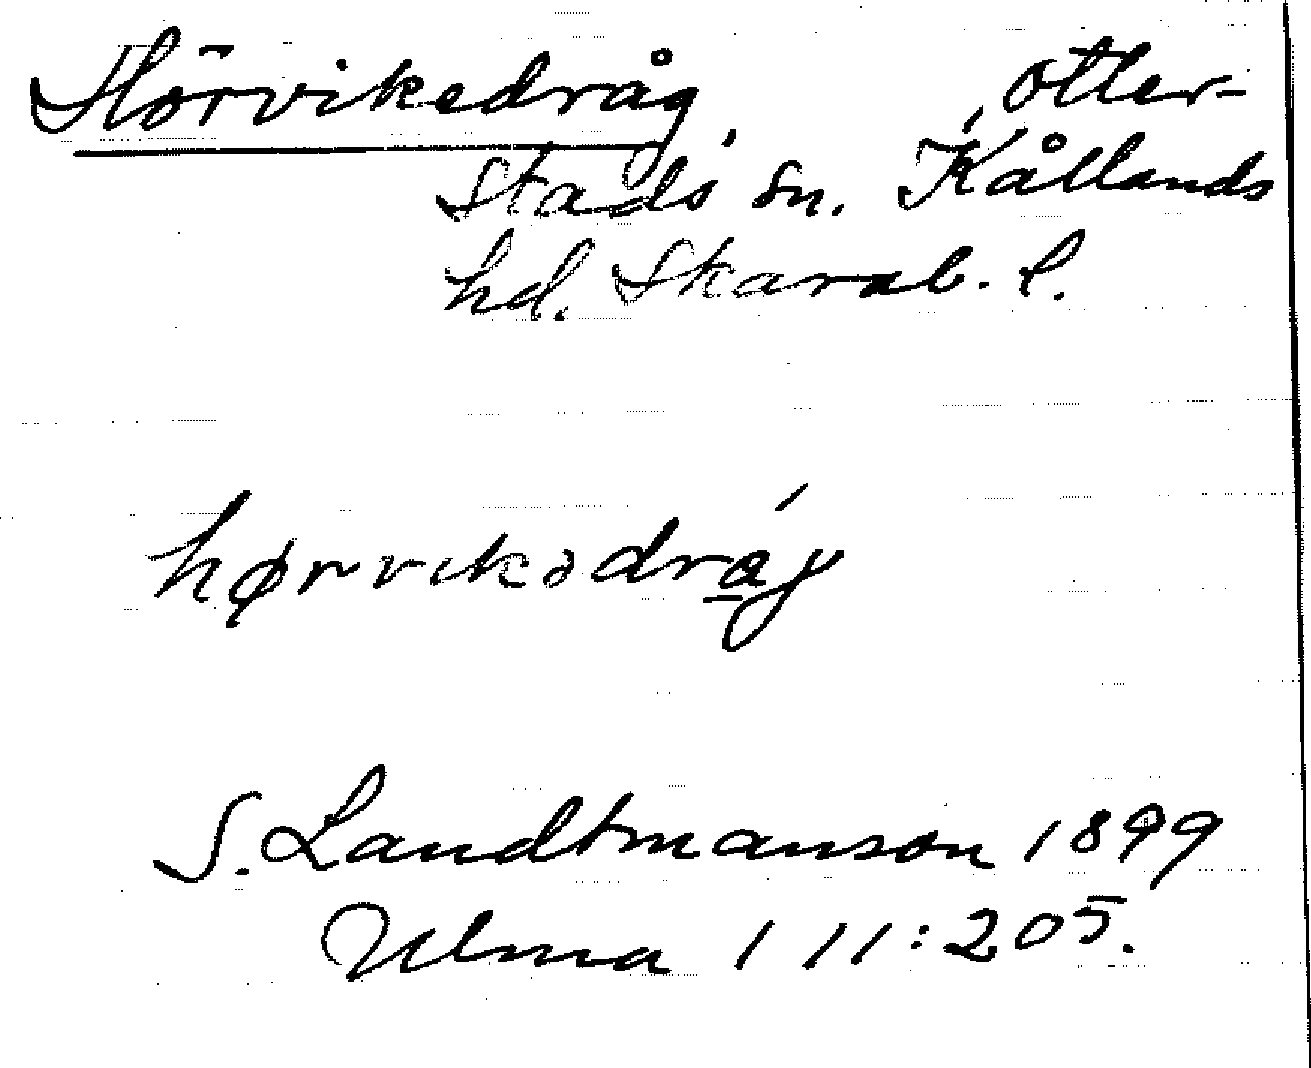 Hörvikedråg, Otter-
stads sn. Kållands
hd. Skarab. l.
hørvikədrág
S. Landtmanson 1899
Ulma 111:205.